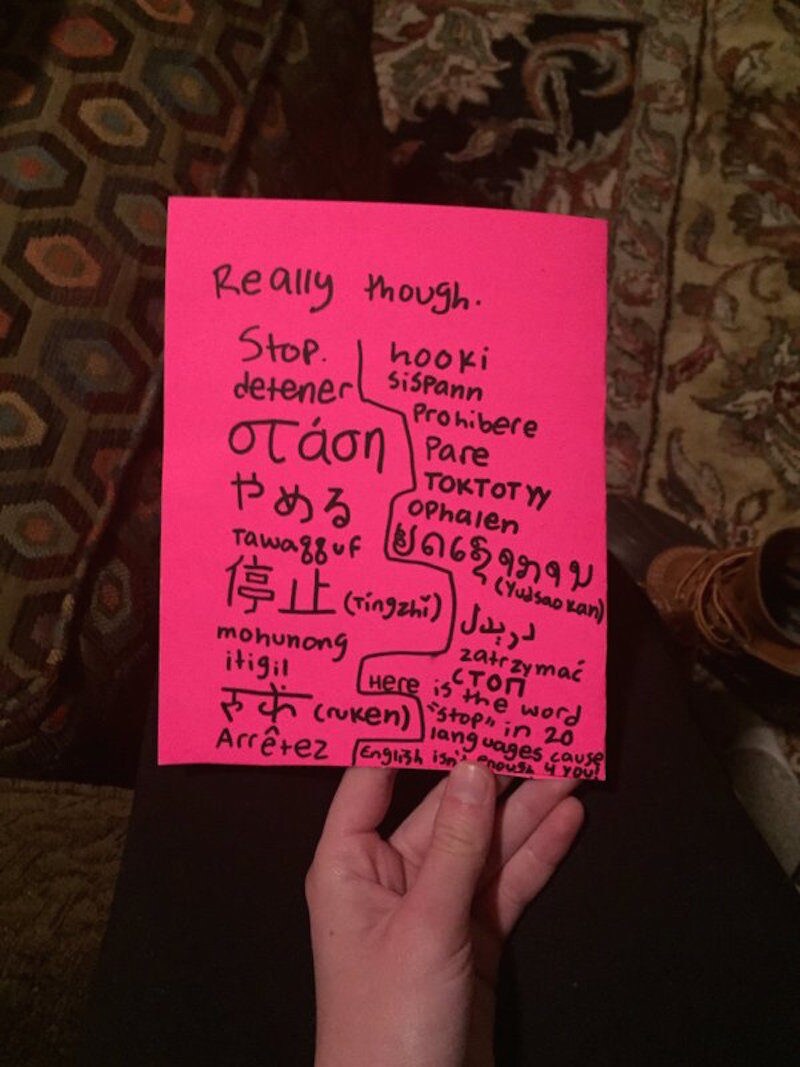 Really though.
Stop.
detener
στάση
やめる
Tawagguf
停止 (Tíngzhǐ)
mohunong
itigil
(ruken)
Arrêtez
hooki
sispann
Prohibere
Pare
TOKTOTYY
ophalen
(Yudsaokan)
zatrzymać
СТОП
Here is the word
"stop" in 20
languages cause
English isn't enough 4 you!